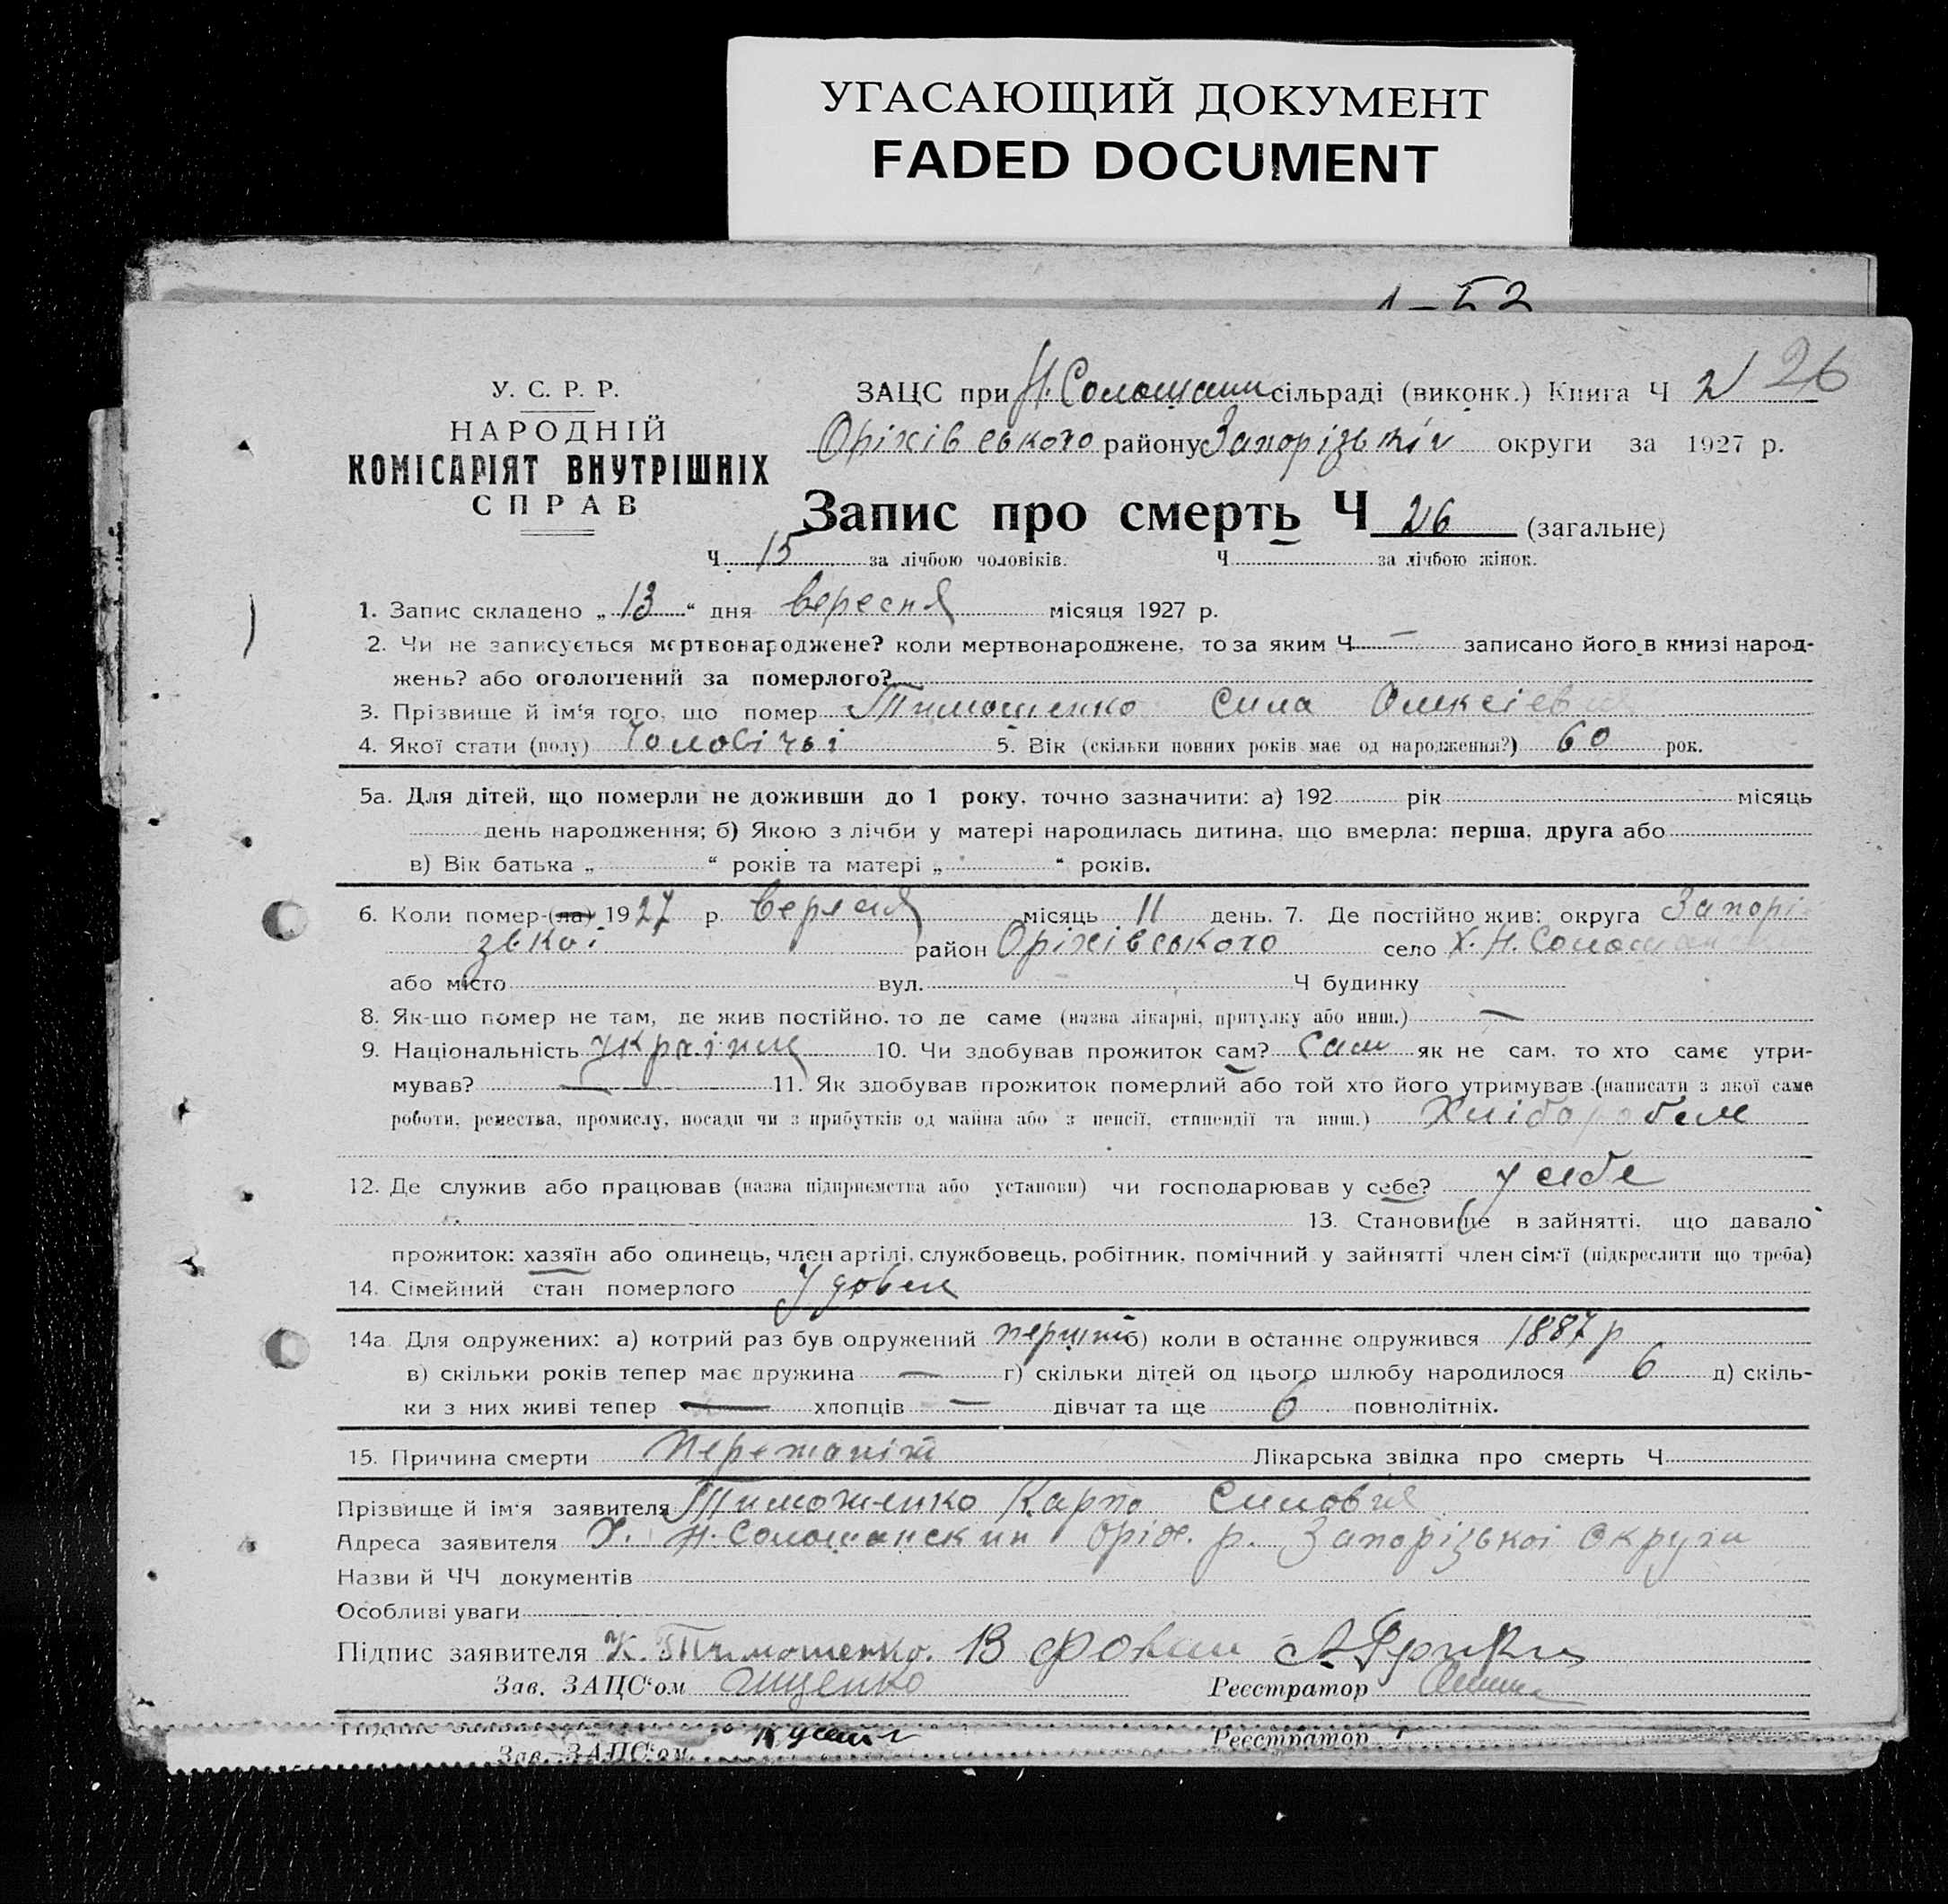 УГАСАЮЩИЙ ДОКУМЕНТ
FADED DOCUMENT
У. С. Р. Р.
НАРОДНІЙ
КОМІСАРІЯТ ВНУТРІШНІХ
СПРАВ
26
ЗАЦС при Н. Солошани сільраді (виконк.) Книга Ч 2
Оріхівського району Запорізькій округи за 1927 р.
Запис про смерть Ч 26 (загальне)
Ч 15 за лічбою чоловіків. Ч за лічбою жінок.
1. Запис складено „ 13 “ дня вересня місяця 1927 р.
2. Чи не записується мертвонароджене? коли мертвонароджене, то за яким Ч — записано його в книзі народ-
жень? або оголошений за померлого?
3. Прізвище й ім'я того, що помер Тимошенко Сила Олексієвич
4. Якої стати (полу) Чоловічьі 5. Вік (скільки повних років має од народження?) 60 рок.
5а. Для дітей, що померли не доживши до 1 року, точно зазначити: а) 192 рік місяць
день народження; б) Якою з лічби у матері народилась дитина, що вмерла: перша, друга або
в) Вік батька „ “ років та матері „ “ років.
6. Коли помер-(ла) 1927 р. вересня місяць 11 день. 7. Де постійно жив: округа Запорі-
зькоі район Оріхівського село Х. Н. Солошан
або місто вул. Ч будинку
8. Як-що помер не там, де жив постійно, то де саме (назва лікарні, притулку або инш.) —
9. Національність українц 10. Чи здобував прожиток сам? Сам як не сам, то хто саме утри-
мував? — 11. Як здобував прожиток померлий або той хто його утримував (написати з якої саме
роботи, ремества, промислу, посади чи з прибутків од майна або з пенсії, стипендії та инш.) Хліборобом
12. Де служив або працював (назва підприємства або установи) чи господарював у себе? у себе
13. Становище в зайнятті, що давало
прожиток: хазяїн або одинець, член артілі, службовець, робітник, помічний у зайнятті член сім'ї (підкреслити що треба)
14. Сімейний стан померлого Удовец
14а. Для одружених: а) котрий раз був одружений перший б) коли в останнє одружився 1887 р
в) скільки років тепер має дружина — г) скільки дітей од цього шлюбу народилося 6 д) скіль-
ки з них живі тепер — хлопців — дівчат та ще 6 повнолітніх.
15. Причина смерти Перетоніт Лікарська звідка про смерть Ч
Прізвище й ім'я заявителя Тимошенко Карпо Силович
Адреса заявителя Х. Н. Солошанский Оріх. р. Запорізькоі Округи
Назви й ЧЧ документів
Особливі уваги
Підпис заявителя К. Тимошенко.
Зав. ЗАЦС'ом Гищенко Реєстратор
Підпис
Зав. ЗАЦС'ом Реєстратор